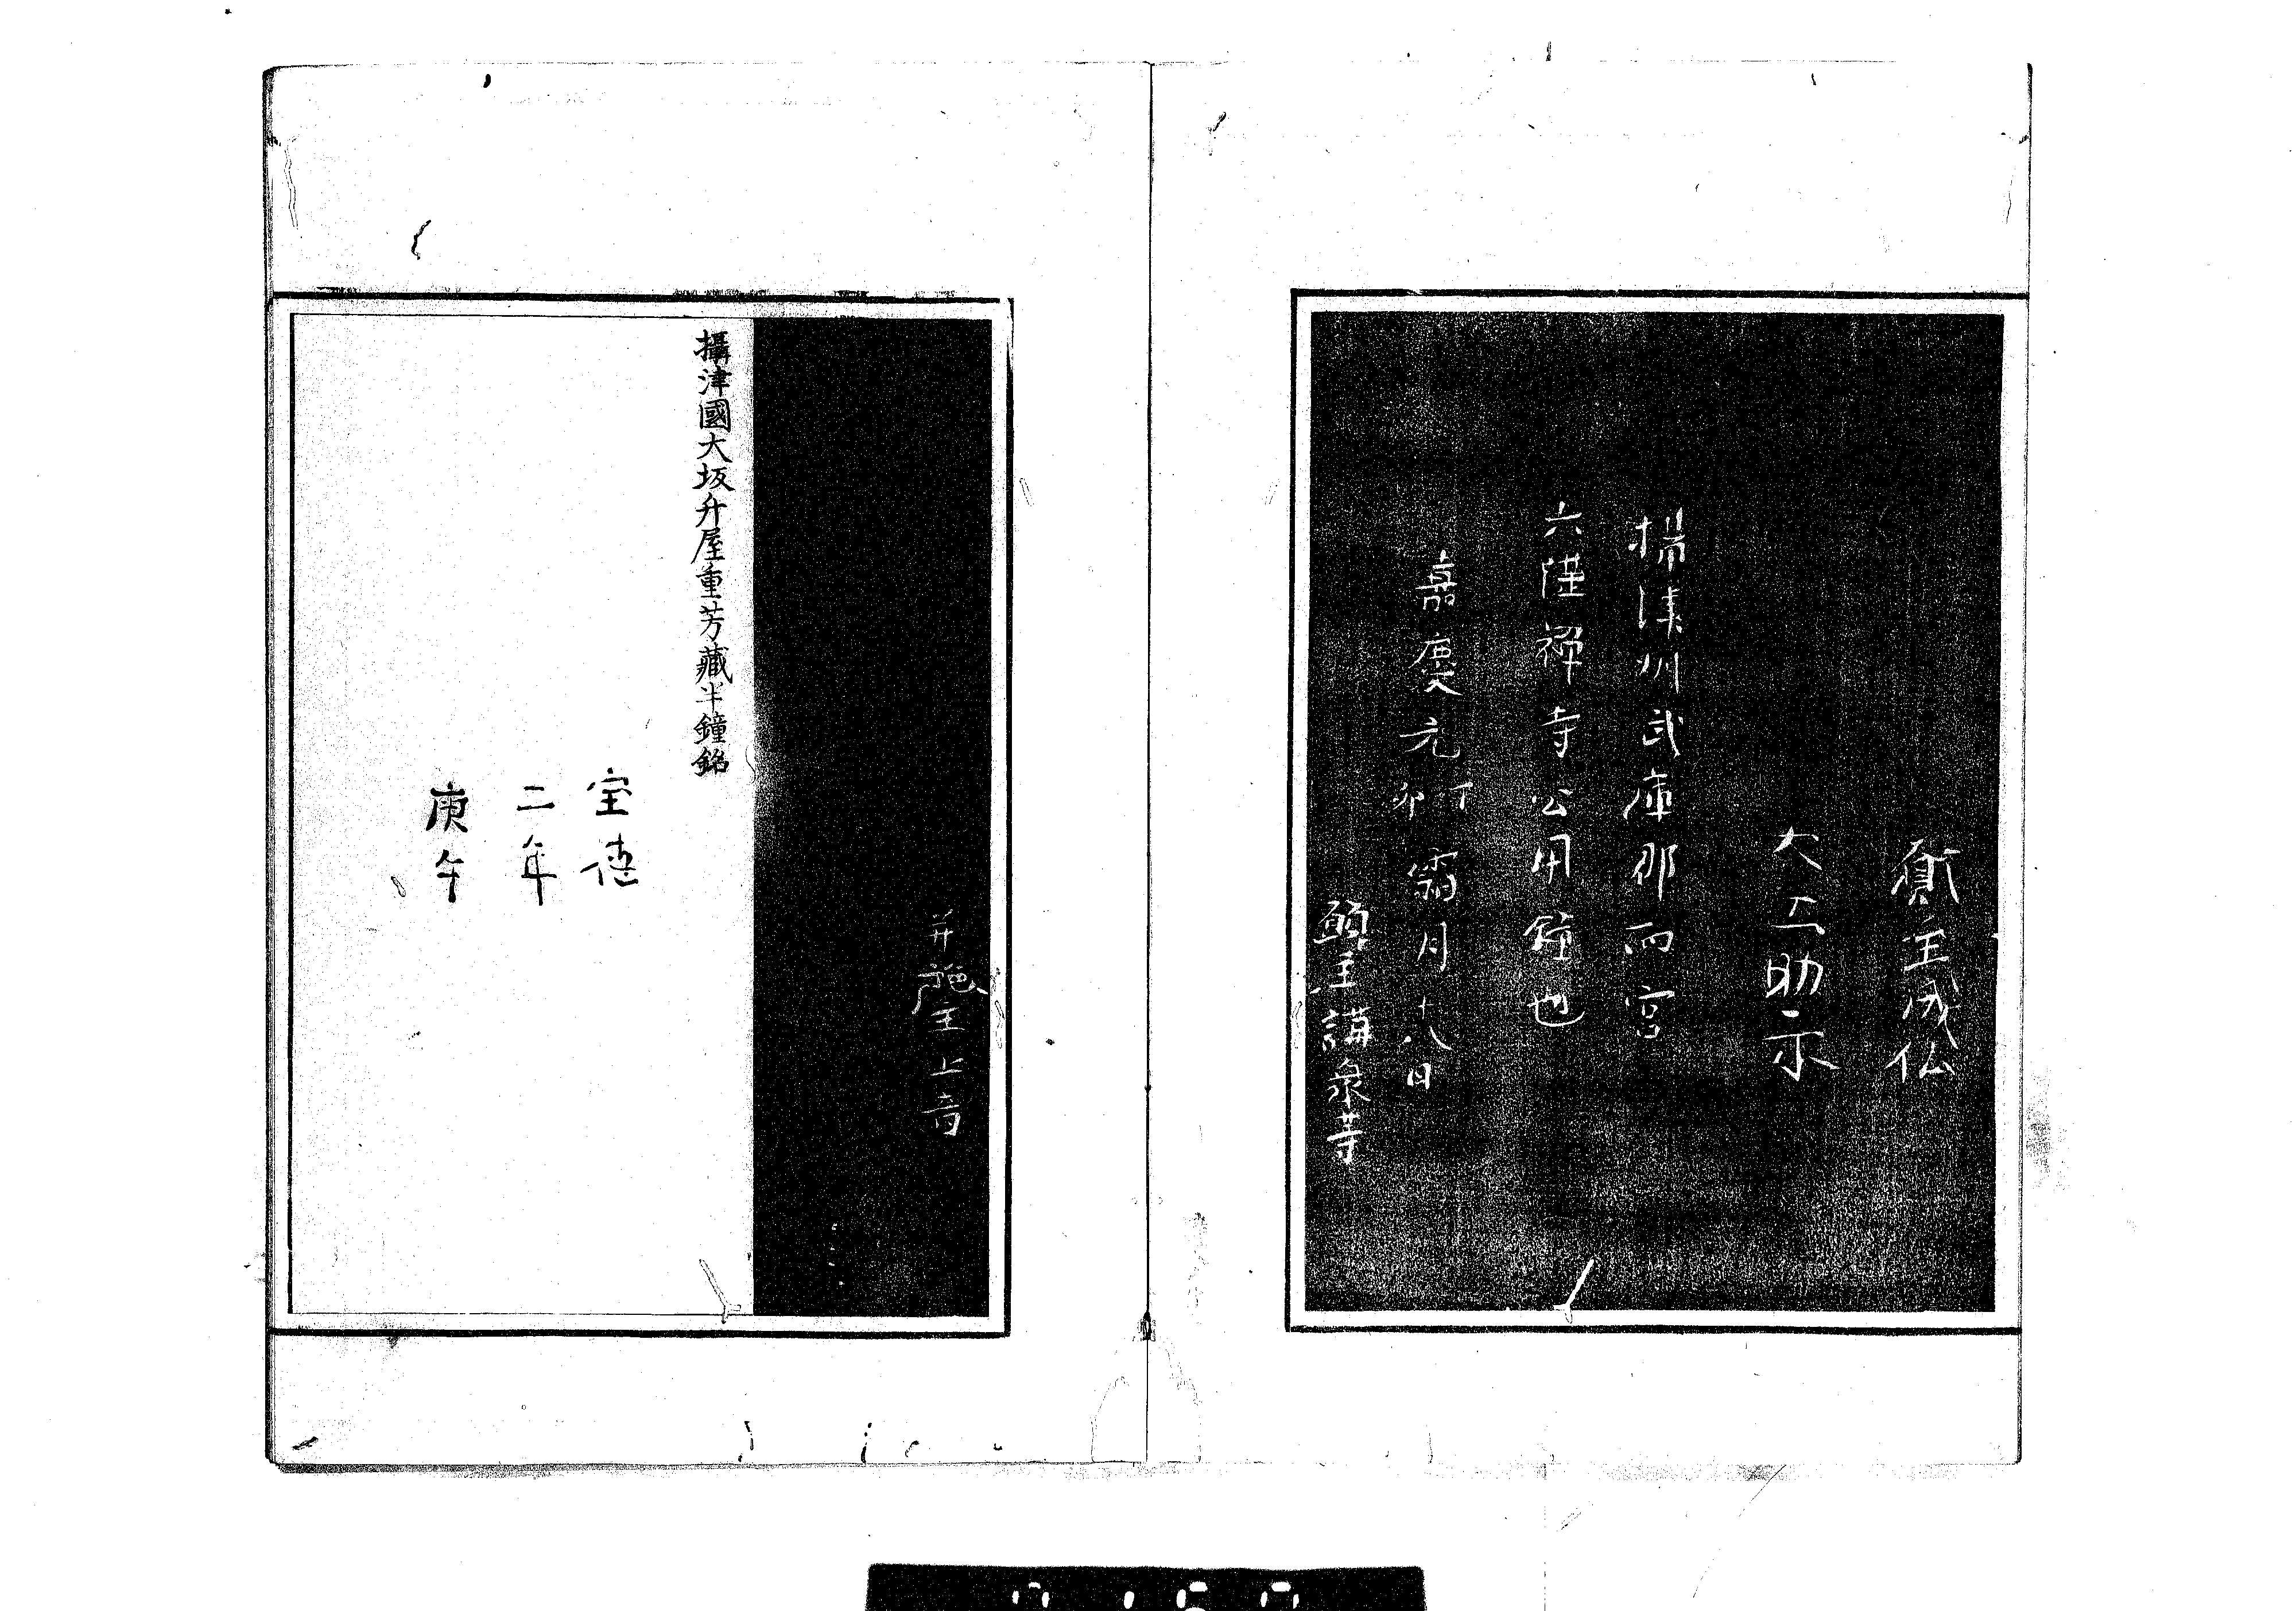 願主成仏
大工助宗
摂津州武庫郡西宮
六湛禅寺公用鐘也
嘉慶元丁卯霜月十八日
願主講衆等
并施主上音
攝津國大坂升屋重芳藏半鐘銘
宝徳
二年
庚午